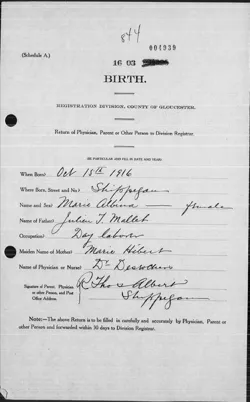 844
004939
(Schedule A.)
16 03
BIRTH.
REGISTRATION DIVISION, COUNTY OF GLOUCESTER.
Return of Physician, Parent or Other Person to Division Registrar.
(BE PARTICULAR AND FILL IN DAYS AND YEAR)
When Born? Oct 15th 1916
Where Born, Street and No? Shippegan
Name and Sex? Marie Albina — female
Name of Father? Julien T. Mallet
Occupation? Day labour
Maiden Name of Mother? Marie Hebert
Name of Physician or Nurse? Dr
Signature of Parent, Physician or other Person, and Post Office Address. Thos Albert
Shippegan
NOTE:—The above Return is to be filled in carefully and accurately by Physician, Parent or
other Person and forwarded within 30 days to Division Registrar.